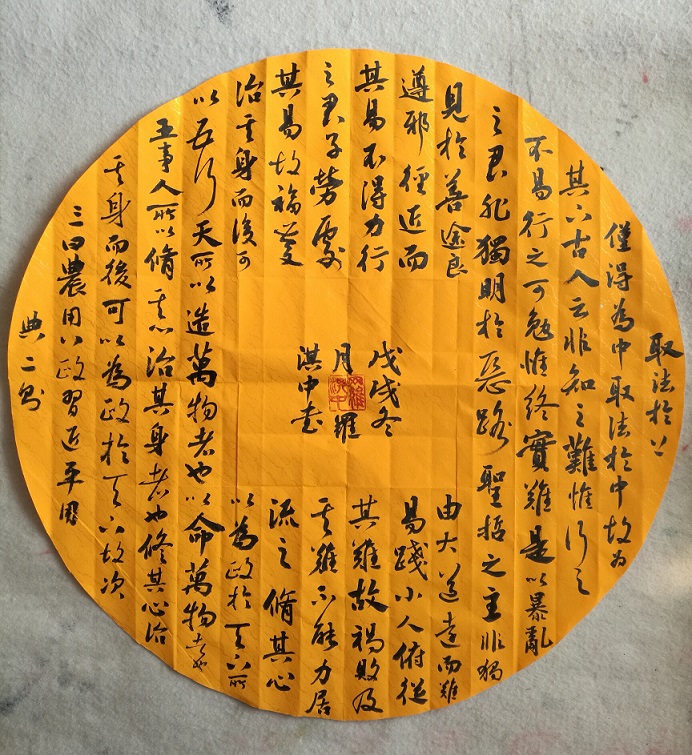 取法於上
僅得為中取法於中故為
其下古人云非知之難惟行之
不易行之可勉惟終實難是以暴亂
之君非獨明於惡路聖哲之主非獨
見於善途良由大道遠而難
遵邪徑近而易踐小人俯從
其易不得力行其難故禍敗及
之君子勞處其難不能力居
其易故福慶流之脩其心
治其身而後可以為政於天下所
以五行天所以造萬物者也以命萬物者也
五事人所以脩其心治其身者也修其心治
其身而後可以為政於天下故次
三曰農用八政習近平用
典二則
戊戌冬
月羅
淇中書